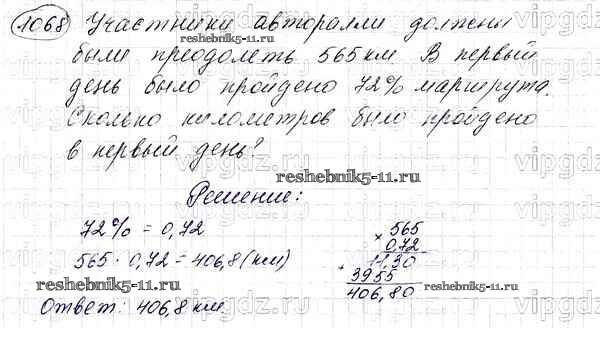 1068 Участники авторалли должны
были преодолеть 565 км. В первый
день было пройдено 72% маршрута.
Сколько километров было пройдено
в первый день?
reshebnik5-11.ru
reshebnik5-11.ru
Решение:
72% = 0,72
565 · 0,72 = 406,8 (км)
reshebnik5-11.ru
Ответ: 406,8 км.
× 565
0,72
11,30
+ 3955
406,80
reshebnik5-11.ru
vipgdz.ru